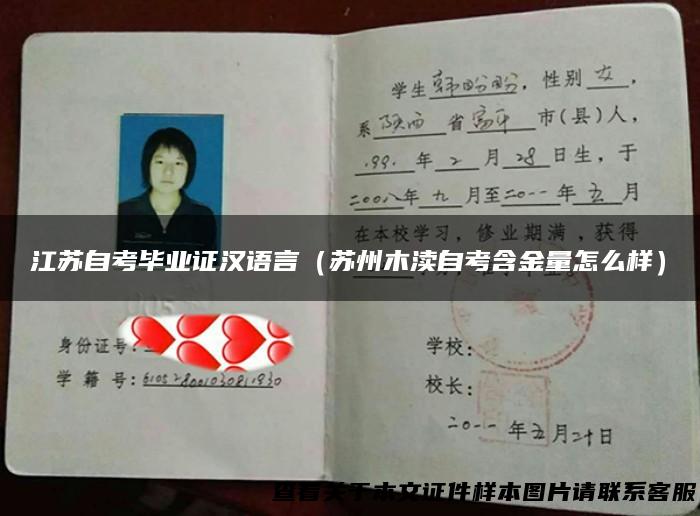 学生韩盼盼，性别女，
系陕西省富平市(县)人，
1991年2月28日生，于
二00八年九月至二0一一年五月
在本校学习，修业期满，获得
江苏自考毕业证汉语言（苏州木渎自考含金量怎么样）
身份证号：
学籍号：
学校：
校长：
二0一一年五月二十日
查看关于本文证件样本图片请联系客服